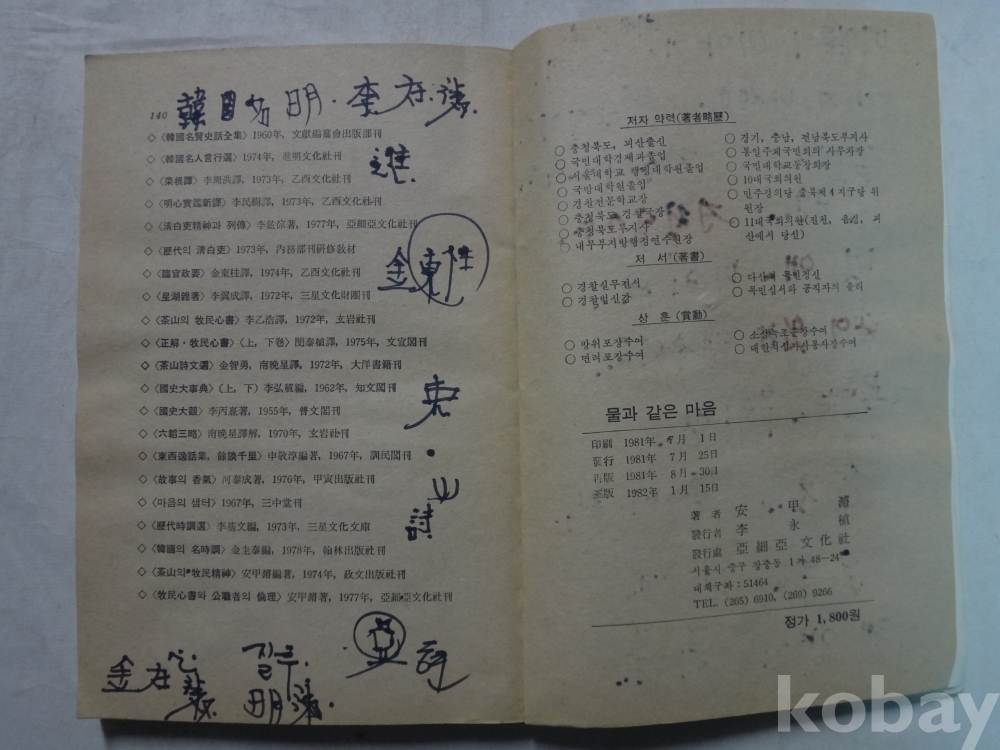 140
韓国名明·李
◇〈韓國名賢史話全集〉1960年, 文獻編纂會出版部刊
◇〈韓國名人言行選〉1974年, 進明文化社刊
進
◇〈菜根譚〉李周洪譯, 1973年, 乙酉文化社刊
◇〈明心寶鑑新譯〉李民樹譯, 1973年, 乙酉文化社刊
◇〈淸白吏精神과 列傳〉李 著, 1977年, 亞細亞文化社刊
◇〈歷代의 淸白吏〉1973年, 內務部刊研修敎材
金東
◇〈臨官政要〉金東桂譯, 1974年, 乙酉文化社刊
◇〈星湖雜著〉李翼成譯, 1972年, 三星文化財團刊
◇〈茶山의 牧民心書〉李乙浩譯, 1972年, 玄岩社刊
◇〈正解·牧民心書〉(上, 下卷) 閔泰植譯, 1975年, 文宣閣刊
◇〈茶山詩文選〉金智勇, 南晩星譯, 1972年, 大洋書籍刊
◇〈國史大事典〉(上, 下) 李弘稙編, 1962年, 知文閣刊
◇〈國史大觀〉李丙燾著, 1955年, 普文閣刊
◇〈六韜三略〉南晩星譯解, 1970年, 玄岩社刊
◇〈東西逸話集, 餘談千里〉申敬淳編著, 1967年, 訓民閣刊
◇〈故事의 香氣〉河泰成著, 1976年, 甲寅出版社刊
◇〈마음의 샘터〉1967年, 三中堂刊
◇〈歷代時調選〉李基文編, 1973年, 三星文化文庫
◇〈韓國의 名時調〉金圭泰編, 1978年, 翰林出版社刊
◇〈茶山의 牧民精神〉安甲濬編著, 1974年, 政文出版社刊
◇〈牧民心書와 公職者의 倫理〉安甲濬著, 1977年, 亞細亞文化社刊
金
明
저자 약력(著者略歷)
○ 충청북도, 괴산출신
○ 국민대학경제과졸업
○ 서울대학교 행정대학원졸업
○ 국방대학원졸업
○ 경찰전문학교장
○ 충청북도 경찰국장
○ 충청북도부지사
○ 내무부지방행정연수원장
○ 경기, 충남, 전남북도부지사
○ 통일주체국민회의 사무차장
○ 국민대학교동창회장
○ 10대국회의원
○ 민주정의당 충북제4지구당 위원장
○ 11대국회의원(진천, 음성, 괴산에서 당선)
저 서(著書)
○ 경찰실무전서
○ 경찰일신감
○ 다산의 목민정신
○ 목민심서와 공직자의 윤리
상 훈(賞勳)
○ 방위포장수여
○ 면려포장수여
○ 소성녹조훈장수여
○ 대한적십자사봉사장수여
물과 같은 마음
印刷 1981年 7月 1日
發行 1981年 7月 25日
再版 1981年 8月 30日
1982年 1月 15日
著者 安甲濬
發行者 李永植
發行處 亞細亞文化社
서울시 중구 장충동 1가 48—24
대체구좌 : 51464
TEL. (265) 6910, (269) 9266
정가 1,800원
kobay